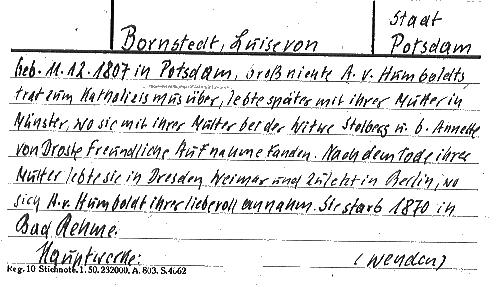 Stadt
Bornstedt, Luise von
Potsdam
Geb. 11.12.1807 in Potsdam, Großniente A. v. Humboldts,
trat zum Katholizismus über, lebte später mit ihrer Mutter in
Münster, wo sie mit ihrer Mutter bei der Witwe Stolberg u. b. Annette
von Droste freundliche Aufnahme fanden. Nach dem Tode ihrer
Mutter lebte sie in Dresden, Weimar und zuletzt in Berlin, wo
sich A.v. Humboldt ihrer liebevoll annahm. Sie starb 1870 in
Bad Rehme.
Hauptwerke: (wenden)
Reg. 10 Stichnoth. 1. 50. 232000. A. 803. S. 4662